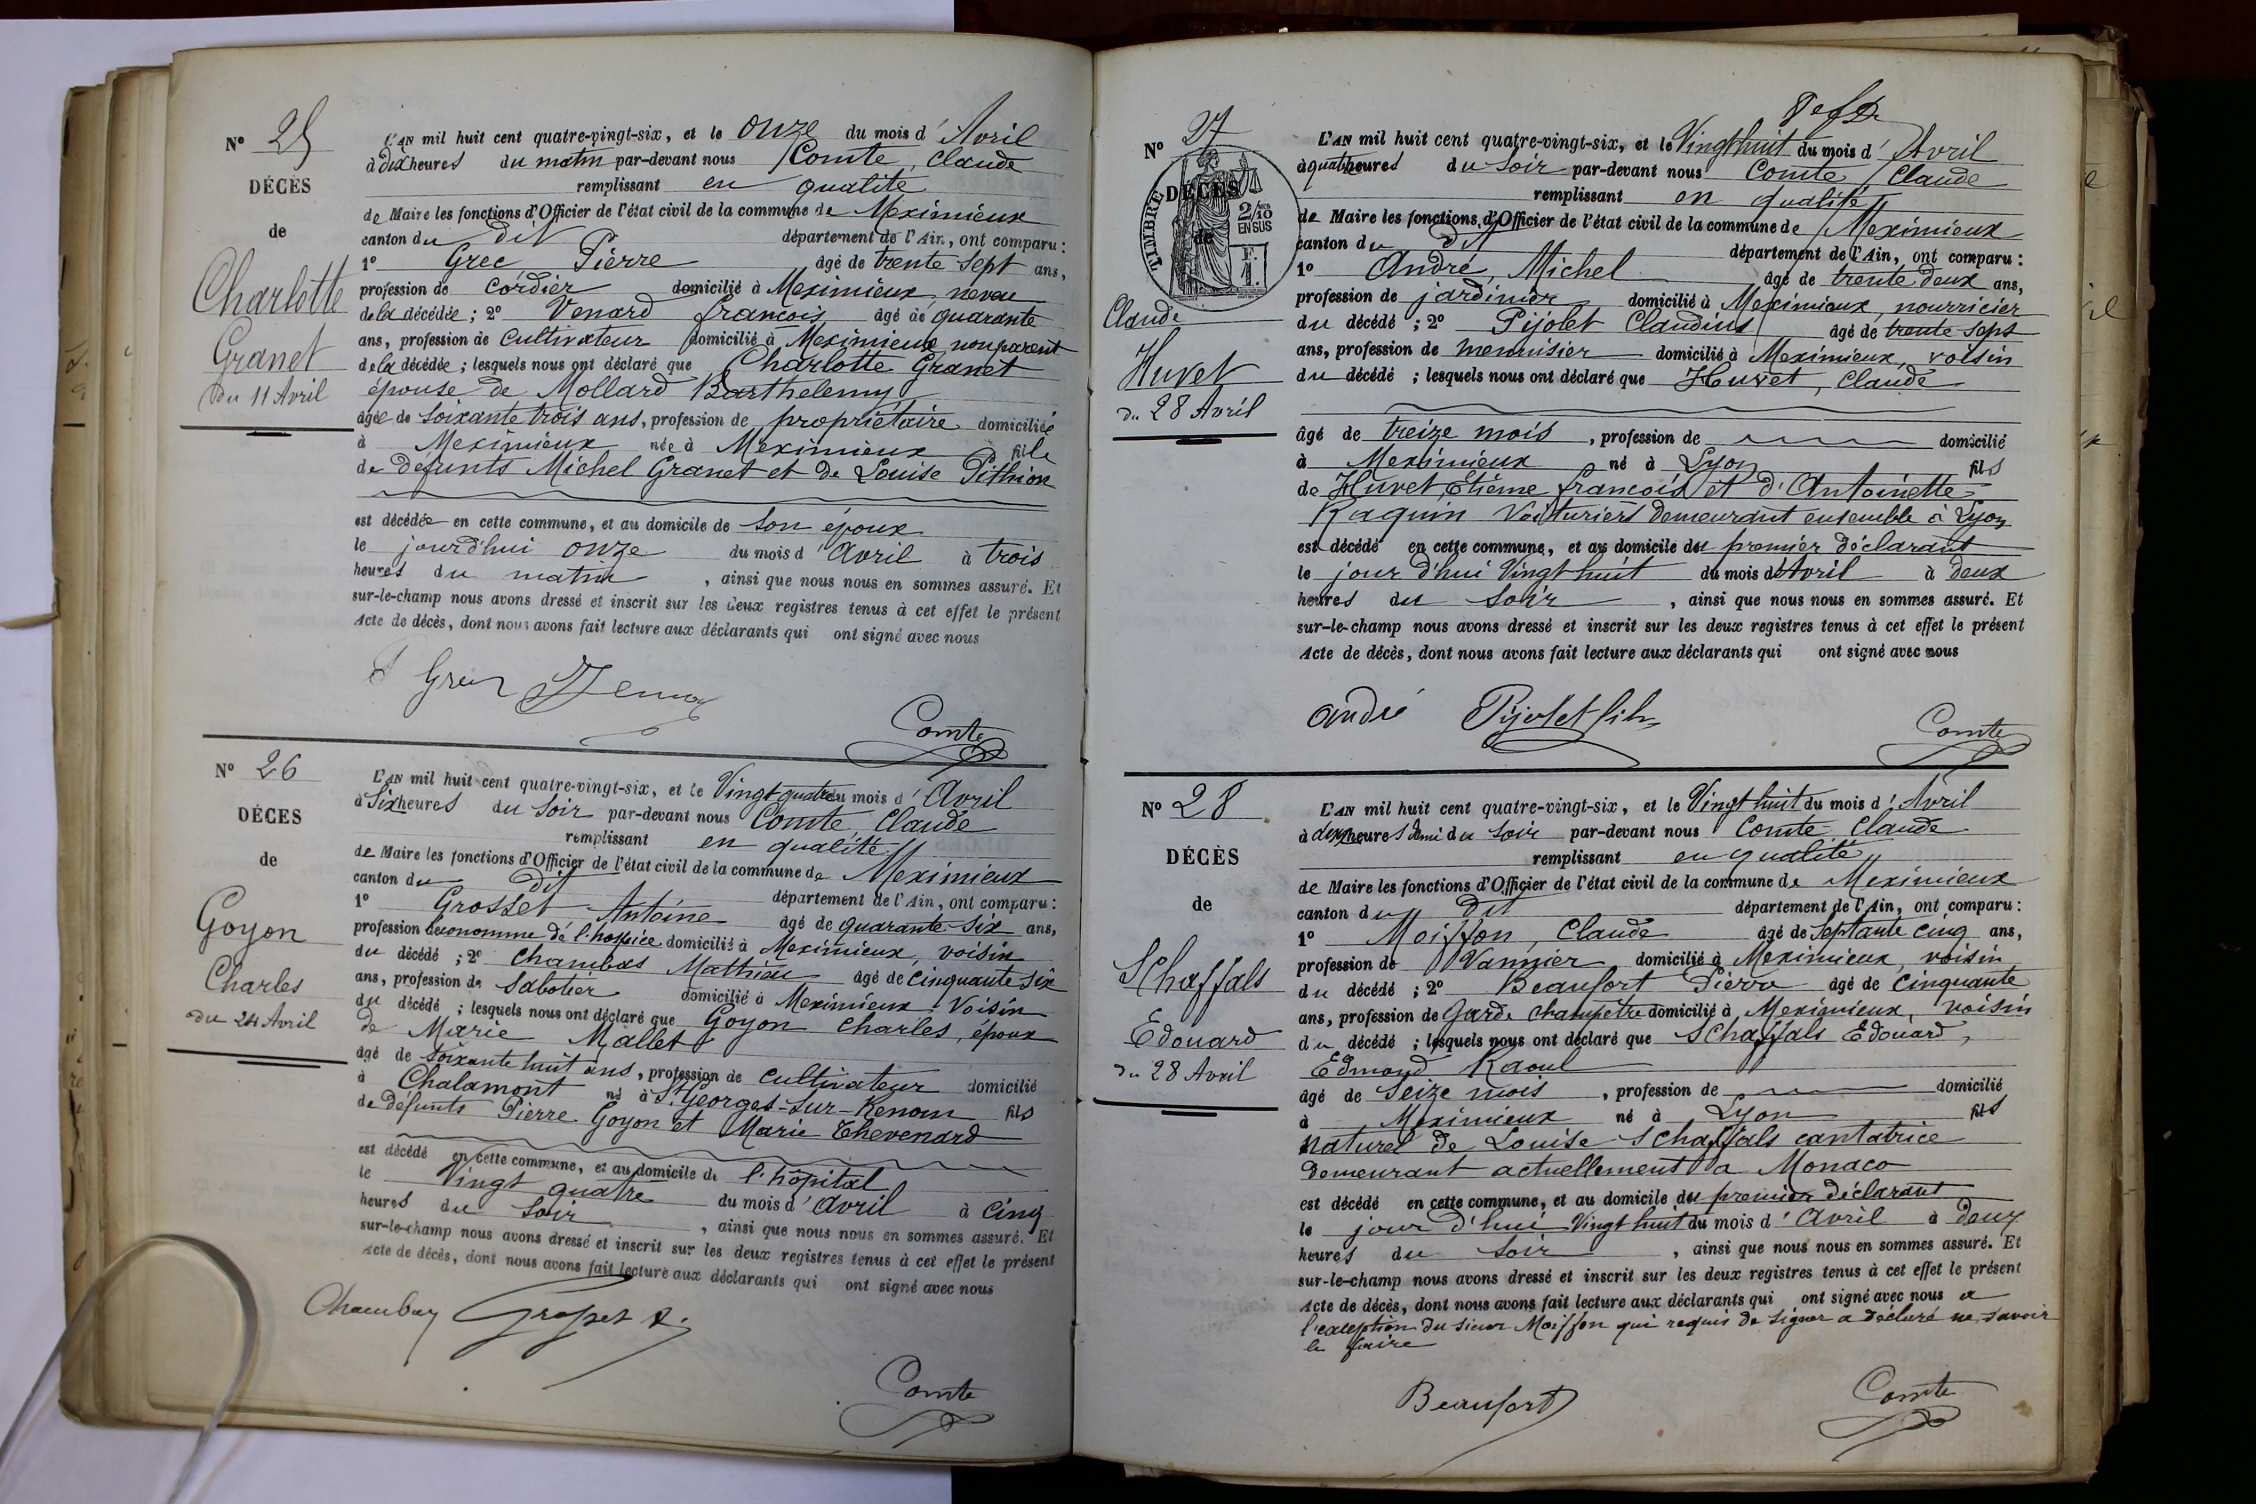 Nº 25
DÉCÈS
de
Charlotte
Granet
du 11 Avril
L'AN mil huit cent quatre-vingt-six, et le onze du mois d'Avril
à dix heures du matin par-devant nous Comte, Claude
remplissant en qualité
de Maire les fonctions d'Officier de l'état civil de la commune de Meximieux
canton du dit département de l'Ain, ont comparu :
1º Grec Pierre âgé de trente sept ans,
profession de cordier domicilié à Meximieux, neveu
de la décédée ; 2º Venard françois âgé de quarante
ans, profession de cultivateur domicilié à Meximieux, non parent
de la décédée ; lesquels nous ont déclaré que Charlotte Granet
épouse de Mollard Barthelemy
âgée de soixante trois ans, profession de propriétaire domiciliée
à Meximieux née à Meximieux fille
de défunts Michel Granet et de Louise Pithion
est décédée en cette commune, et au domicile de son époux
le jourd'hui onze du mois d'avril à trois
heures du matin, ainsi que nous nous en sommes assuré. Et
sur-le-champ nous avons dressé et inscrit sur les deux registres tenus à cet effet le présent
Acte de décès, dont nous avons fait lecture aux déclarants qui ont signé avec nous
Comte
Nº 26
DÉCÈS
de
Goyon
Charles
du 24 Avril
L'AN mil huit cent quatre-vingt-six, et le Vingt quatre du mois d'Avril
à Six heures du Soir par-devant nous Comte Claude
remplissant en qualité
de Maire les fonctions d'Officier de l'état civil de la commune de Meximieux
canton du dit département de l'Ain, ont comparu :
1º Grosset Antoine âgé de quarante-six ans,
profession économme de l'hospice domicilié à Meximieux, voisin
du décédé ; 2º Chambas Mathieu âgé de cinquante six
ans, profession de Sabotier domicilié à Meximieux Voisin
du décédé ; lesquels nous ont déclaré que Goyon Charles, époux
de Marie Mallet
âgé de soixante huit ans, profession de cultivateur domicilié
à Chalamont né à St Georges-sur-Renom fils
de défunts Pierre Goyon et Marie Thevenard
est décédé en cette commune, et au domicile de l'hôpital
le Vingt quatre du mois d'avril à cinq
heures du Soir, ainsi que nous nous en sommes assuré. Et
sur-le-champ nous avons dressé et inscrit sur les deux registres tenus à cet effet le présent
Acte de décès, dont nous avons fait lecture aux déclarants qui ont signé avec nous
Grosset A.
Comte
Nº 27
TIMBRE
2/10 EN SUS
F. 1.
DÉCÈS
de
Claude
Huvet
du 28 Avril
L'AN mil huit cent quatre-vingt-six, et le Vingt huit du mois d'Avril
à quatre heures du soir par-devant nous Comte Claude
remplissant en qualité
de Maire les fonctions d'Officier de l'état civil de la commune de Meximieux
canton du dit département de l'Ain, ont comparu :
1º André, Michel âgé de trente deux ans,
profession de jardinier domicilié à Meximieux, nourricier
du décédé ; 2º Pijolet Claudius âgé de trente sept
ans, profession de menuisier domicilié à Meximieux, voisin
du décédé ; lesquels nous ont déclaré que Huvet, Claude
âgé de treize mois, profession de domicilié
à Meximieux né à Lyon fils
de Huvet, Etiéme françois et d'Antoinette
Raquin Voituriers demeurant ensemble à Lyon
est décédé en cette commune, et au domicile du premier déclarant
le jour d'hui Vingt huit du mois d'Avril à deux
heures du soir, ainsi que nous nous en sommes assuré. Et
sur-le-champ nous avons dressé et inscrit sur les deux registres tenus à cet effet le présent
Acte de décès, dont nous avons fait lecture aux déclarants qui ont signé avec nous
andré Pijolet fils
Comte
Nº 28
DÉCÈS
de
Schaffals
Edouard
du 28 Avril
L'AN mil huit cent quatre-vingt-six, et le Vingt huit du mois d'Avril
à deux heures demi du soir par-devant nous Comte Claude
remplissant en qualité
de Maire les fonctions d'Officier de l'état civil de la commune de Meximieux
canton du dit département de l'Ain, ont comparu :
1º Moiffon, Claude âgé de Septante cinq ans,
profession de Vannier domicilié à Meximieux, voisin
du décédé ; 2º Beaufort Pierre âgé de cinquante
ans, profession de Garde champêtre domicilié à Meximieux, voisin
du décédé ; lesquels nous ont déclaré que Schaffals Edouard,
Edmond Raoul
âgé de Seize mois, profession de domicilié
à Meximieux né à Lyon fils
naturel de Louise Schaffals cantatrice
demeurant actuellement à Monaco
est décédé en cette commune, et au domicile du premier déclarant
le jour d'hui Vingt huit du mois d'Avril à deux
heures du Soir, ainsi que nous nous en sommes assuré. Et
sur-le-champ nous avons dressé et inscrit sur les deux registres tenus à cet effet le présent
Acte de décès, dont nous avons fait lecture aux déclarants qui ont signé avec nous a
l'exception du sieur Moiffon qui requis de signer a déclaré ne savoir
le faire
Beaufort
Comte